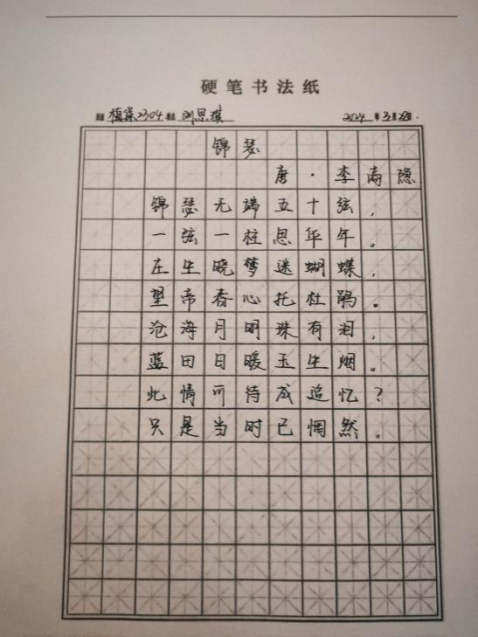 硬笔书法纸
植保2304 刘思琪 2024年3月28日
锦瑟
唐·李商隐
锦瑟无端五十弦，
一弦一柱思华年。
庄生晓梦迷蝴蝶，
望帝春心托杜鹃。
沧海月明珠有泪，
蓝田日暖玉生烟。
此情可待成追忆？
只是当时已惘然。